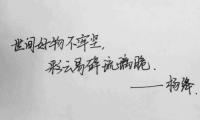 世间好物不牢坚，
彩云易碎琉璃脆．
——杨绛．